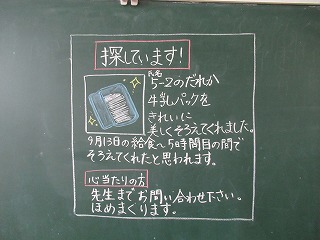 探しています!
氏名
5-2のだれか
牛乳パックを
きれいに
美しくそろえてくれました。
9月13日の給食〜5時間目の間で
そろえてくれたと思われます。
心当たりの方
先生までお問い合わせ下さい。
ほめまくります。